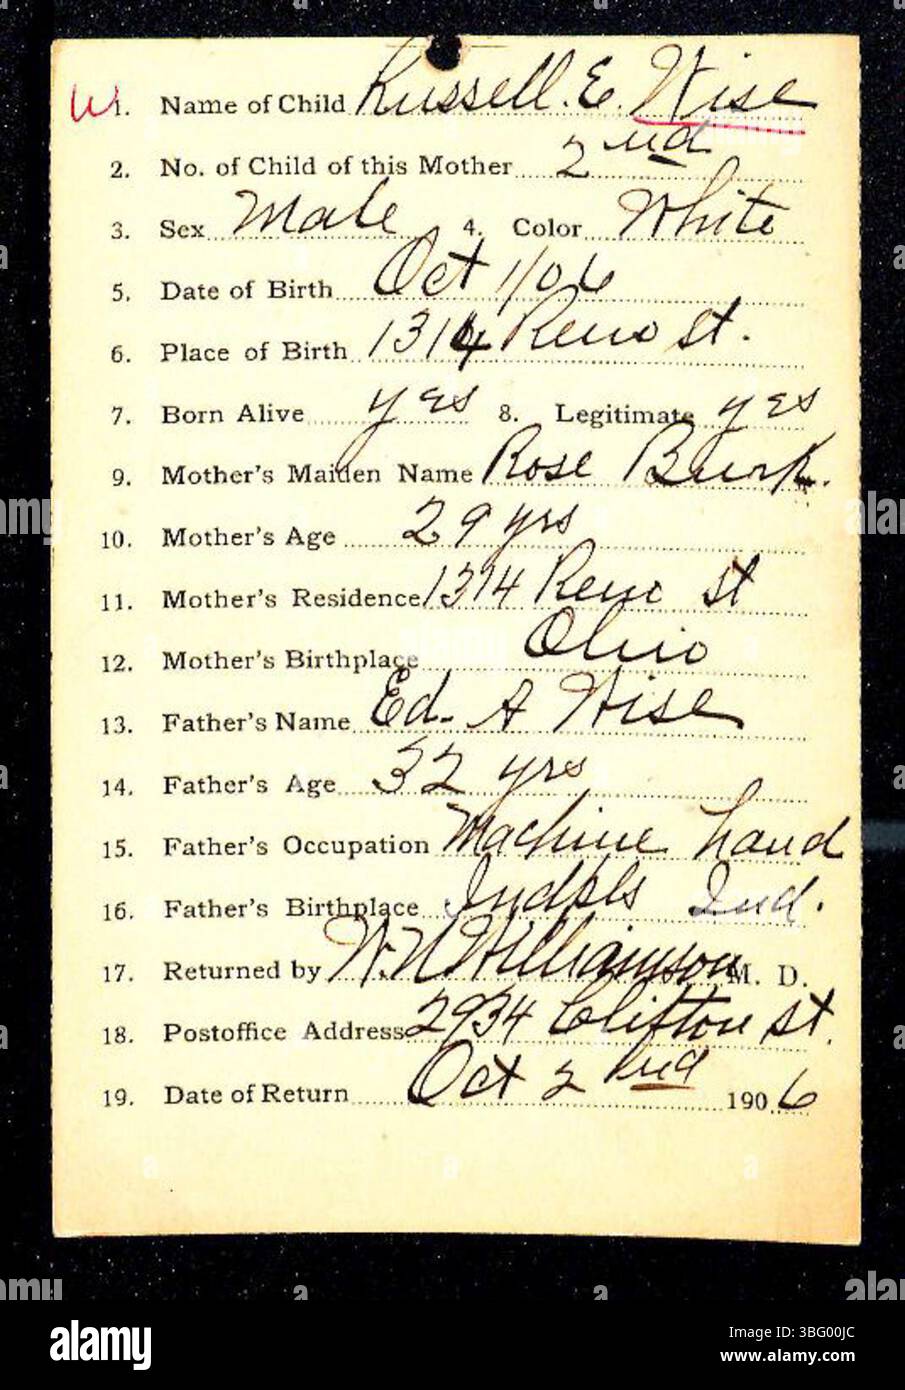 W 1. Name of Child Russell. E. Wise
2. No. of Child of this Mother 2nd
3. Sex Male 4. Color White
5. Date of Birth Oct 1/06
6. Place of Birth 1314 Reno St.
7. Born Alive yes 8. Legitimate yes
9. Mother's Maiden Name Rose Burk.
10. Mother's Age 29 yrs
11. Mother's Residence 1314 Reno St
12. Mother's Birthplace Ohio
13. Father's Name Ed. A Wise
14. Father's Age 32 yrs
15. Father's Occupation Machine hand
16. Father's Birthplace Indpls Ind.
17. Returned by W. N Williamson M. D.
18. Postoffice Address 2934 Clifton St.
19. Date of Return Oct 2nd 1906
alamy
Image ID: 3BG00JC
www.alamy.com